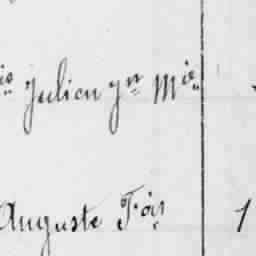 is Julien Jn Mie
Auguste Fois 1